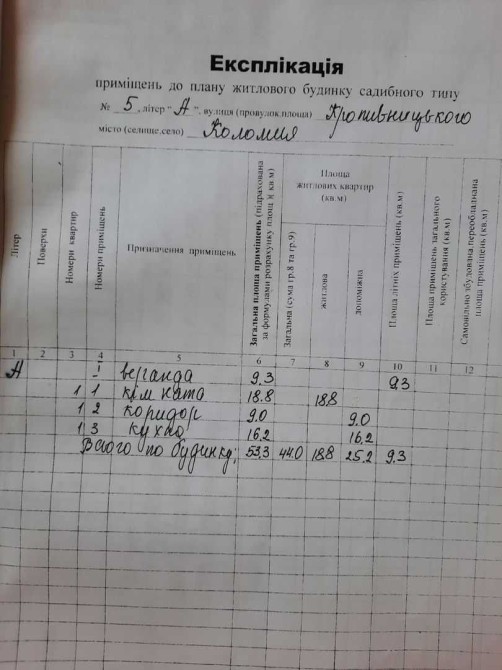 Експлікація
приміщень до плану житлового будинку садибного типу
№ 5, літер "А", вулиця (провулок,площа) Кропивницького
місто (селище,село) Коломия
Літер
Поверхи
Номери квартир
Номери приміщень
Призначення приміщень
Загальна площа приміщень (підрахована за формулами розрахунку площ)( кв м)
Площа житлових квартир (кв.м)
Загальна (сума гр.8 та гр.9)
житлова
допоміжна
Площа літніх приміщень (кв.м)
Площа приміщень загального користування (кв.м)
Самовільно збудована,переобладнана площа приміщень (кв.м)
1 2 3 4 5 6 7 8 9 10 11 12
А І веранда 9.3 9.3
1 1 кімната 18.8 18.8
1 2 коридор 9.0 9.0
1 3 кухно 16,2 16,2
Всього по будинку: 53,3 44.0 18.8 25.2 9.3